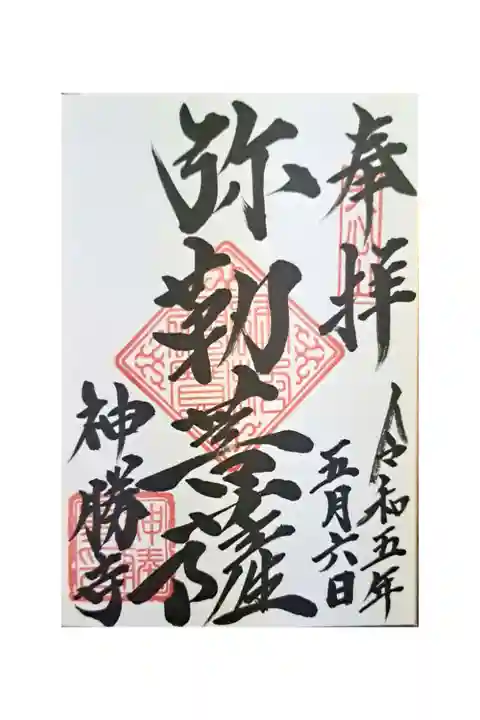 奉拝
令和五年
五月六日
弥勒菩薩
神勝寺